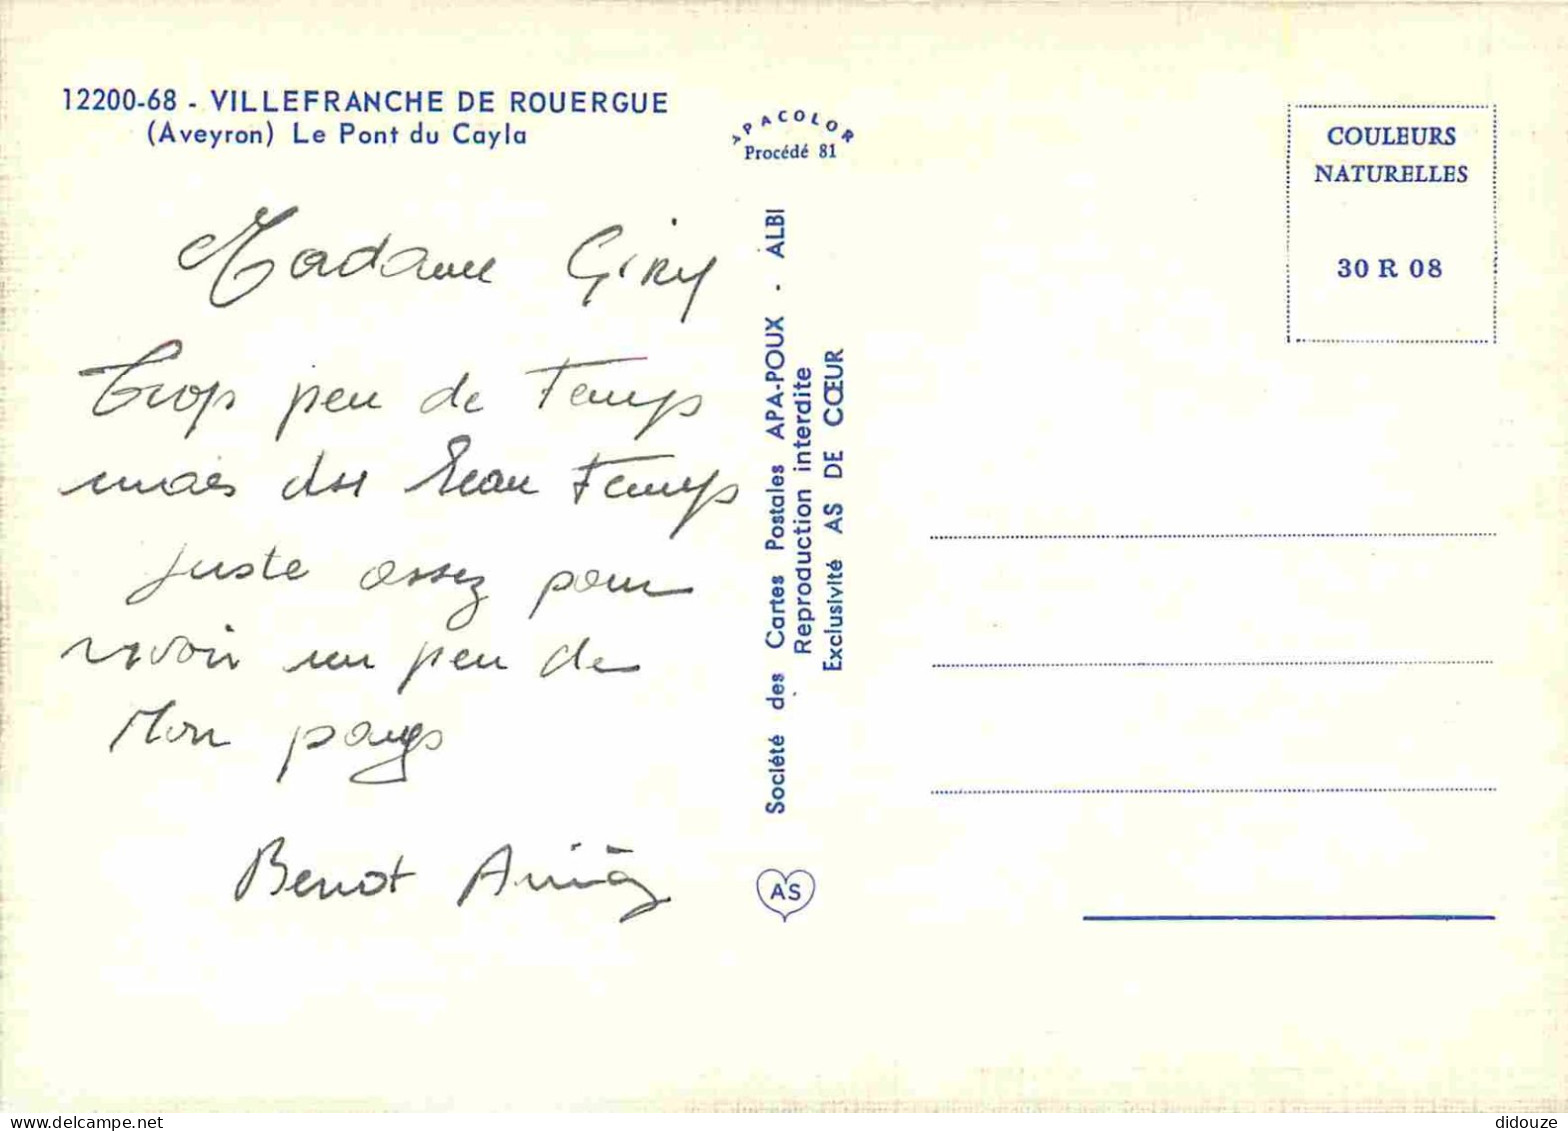 12200-68 - VILLEFRANCHE DE ROUERGUE
(Aveyron) Le Pont du Cayla
APACOLOR
Procédé 81
COULEURS
NATURELLES
30 R 08
Madame Giry
Trop peu de Temps
mais du Beau Temps
juste assez pour
revoir un peu de
Mon pays
Benot
Société des Cartes Postales APA-POUX . ALBI
Reproduction interdite
Exclusivité AS DE CŒUR
AS
delcampe.net
didouze